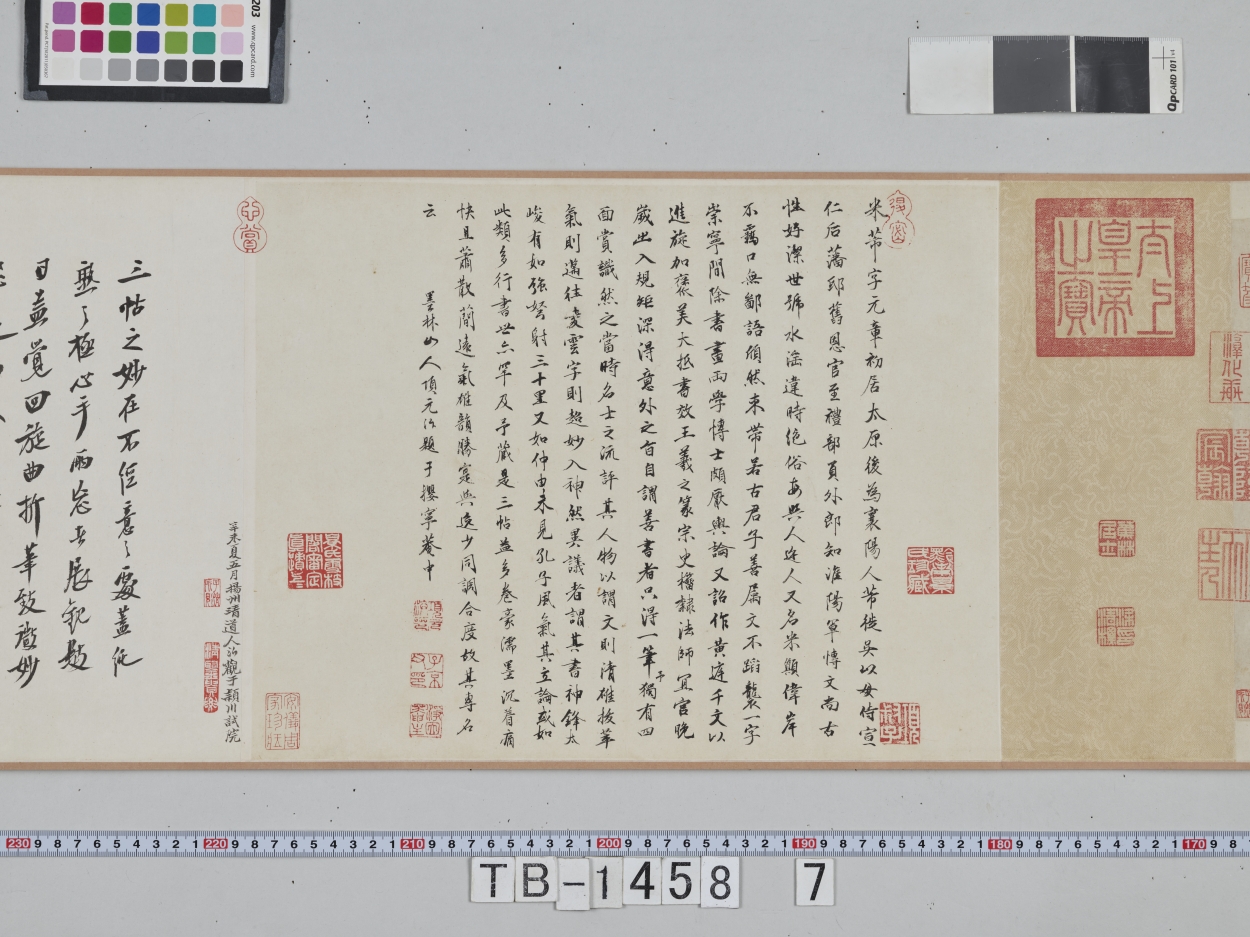 太上
皇帝
之寶
米芾字元章初居太原後為襄陽人芾徙吳以母侍宣
仁后藩邸舊恩官至禮部員外郎知淮陽軍博文尚古
性好潔世號水淫違時絶俗每與人迕人又名米顛偉岸
不羈口無鄙語頎然束帶若古君子善屬文不蹈襲一字
崇寧間除書畫兩學博士頗厭輿論又詔作黃庭千文以
進旋加褒美大抵書效王羲之篆宗史籀隸法師宜官晚
歲出入規矩深得意外之旨自謂善書者只得一筆予獨有四
面賞識然之當時名士之流評其人物以謂文則清雄拔萃
氣則邁往凌雲字則超妙入神然異議者謂其書神鋒太
峻有如強弩射三十里又如仲由未見孔子風氣其立論或如
此類多行書世亦罕及予藏是三帖益多卷豪濡墨沉着痛
快且蕭散簡遠氣雄韻勝寔與逸少同調合度故其專名
云
墨林山人項元汴題于攖寧菴中
辛未夏五月揚州清道人泊觀于潁川試院
三帖之妙在不經意之處蓋化
無之極心手兩忘书展觀題
日益覺回旋曲折筆致啟妙
QPcard 101 v4
203
www.qpcard.com
230 9 8 7 6 5 4 3 2 1 220 9 8 7 6 5 4 3 2 1 210 9 8 7 6 5 4 3 2 1 200 9 8 7 6 5 4 3 2 1 190 9 8 7 6 5 4 3 2 1 180 9 8 7 6 5 4 3 2 1 170 9 8
TB-1458 7